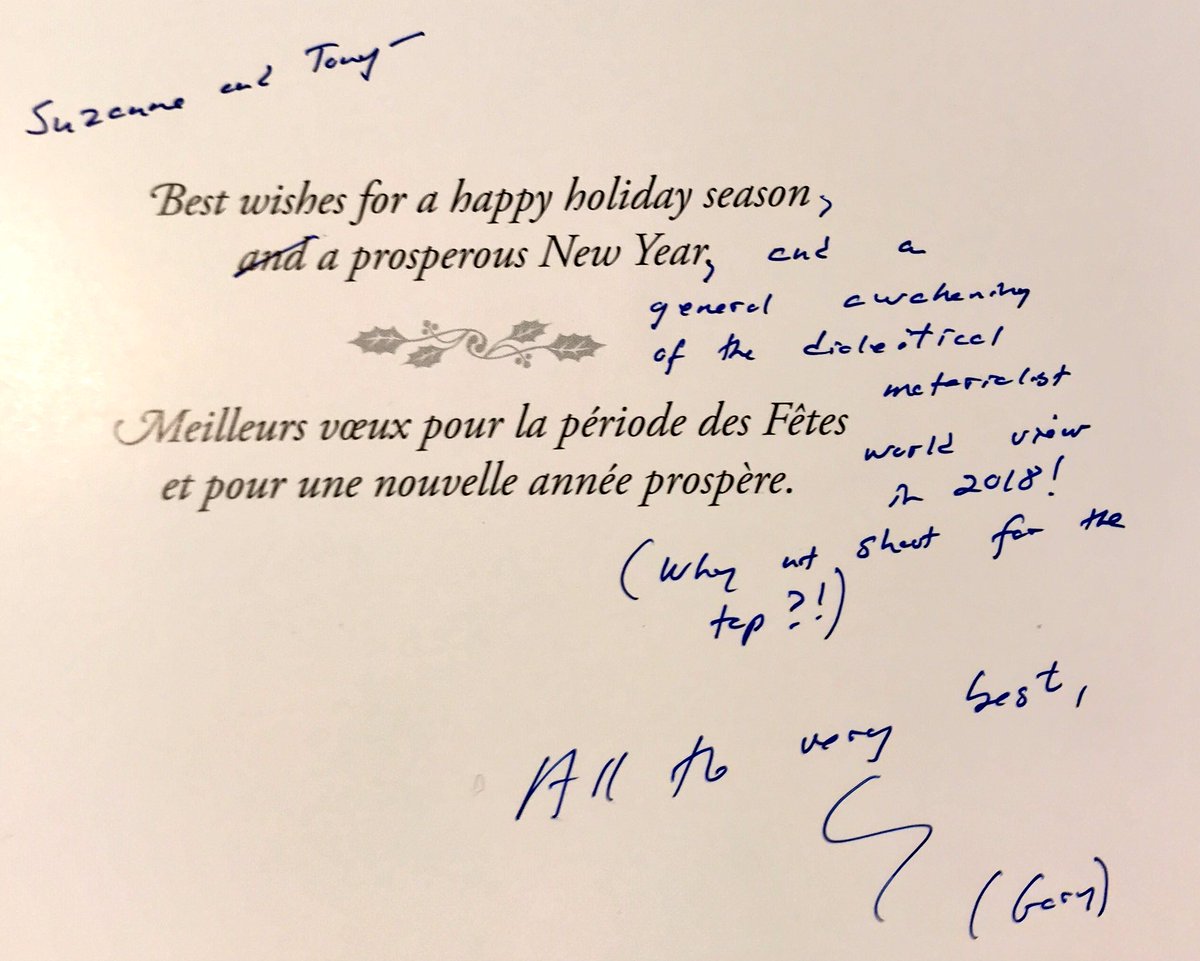 Suzanne and Tony –
Best wishes for a happy holiday season,
and a prosperous New Year, and a
general awakening
of the dialectical
materialist
Meilleurs vœux pour la période des Fêtes
world view
et pour une nouvelle année prospère.
in 2018!
(Why not shoot for the
top?!)
All the very best,
G
(Gary)